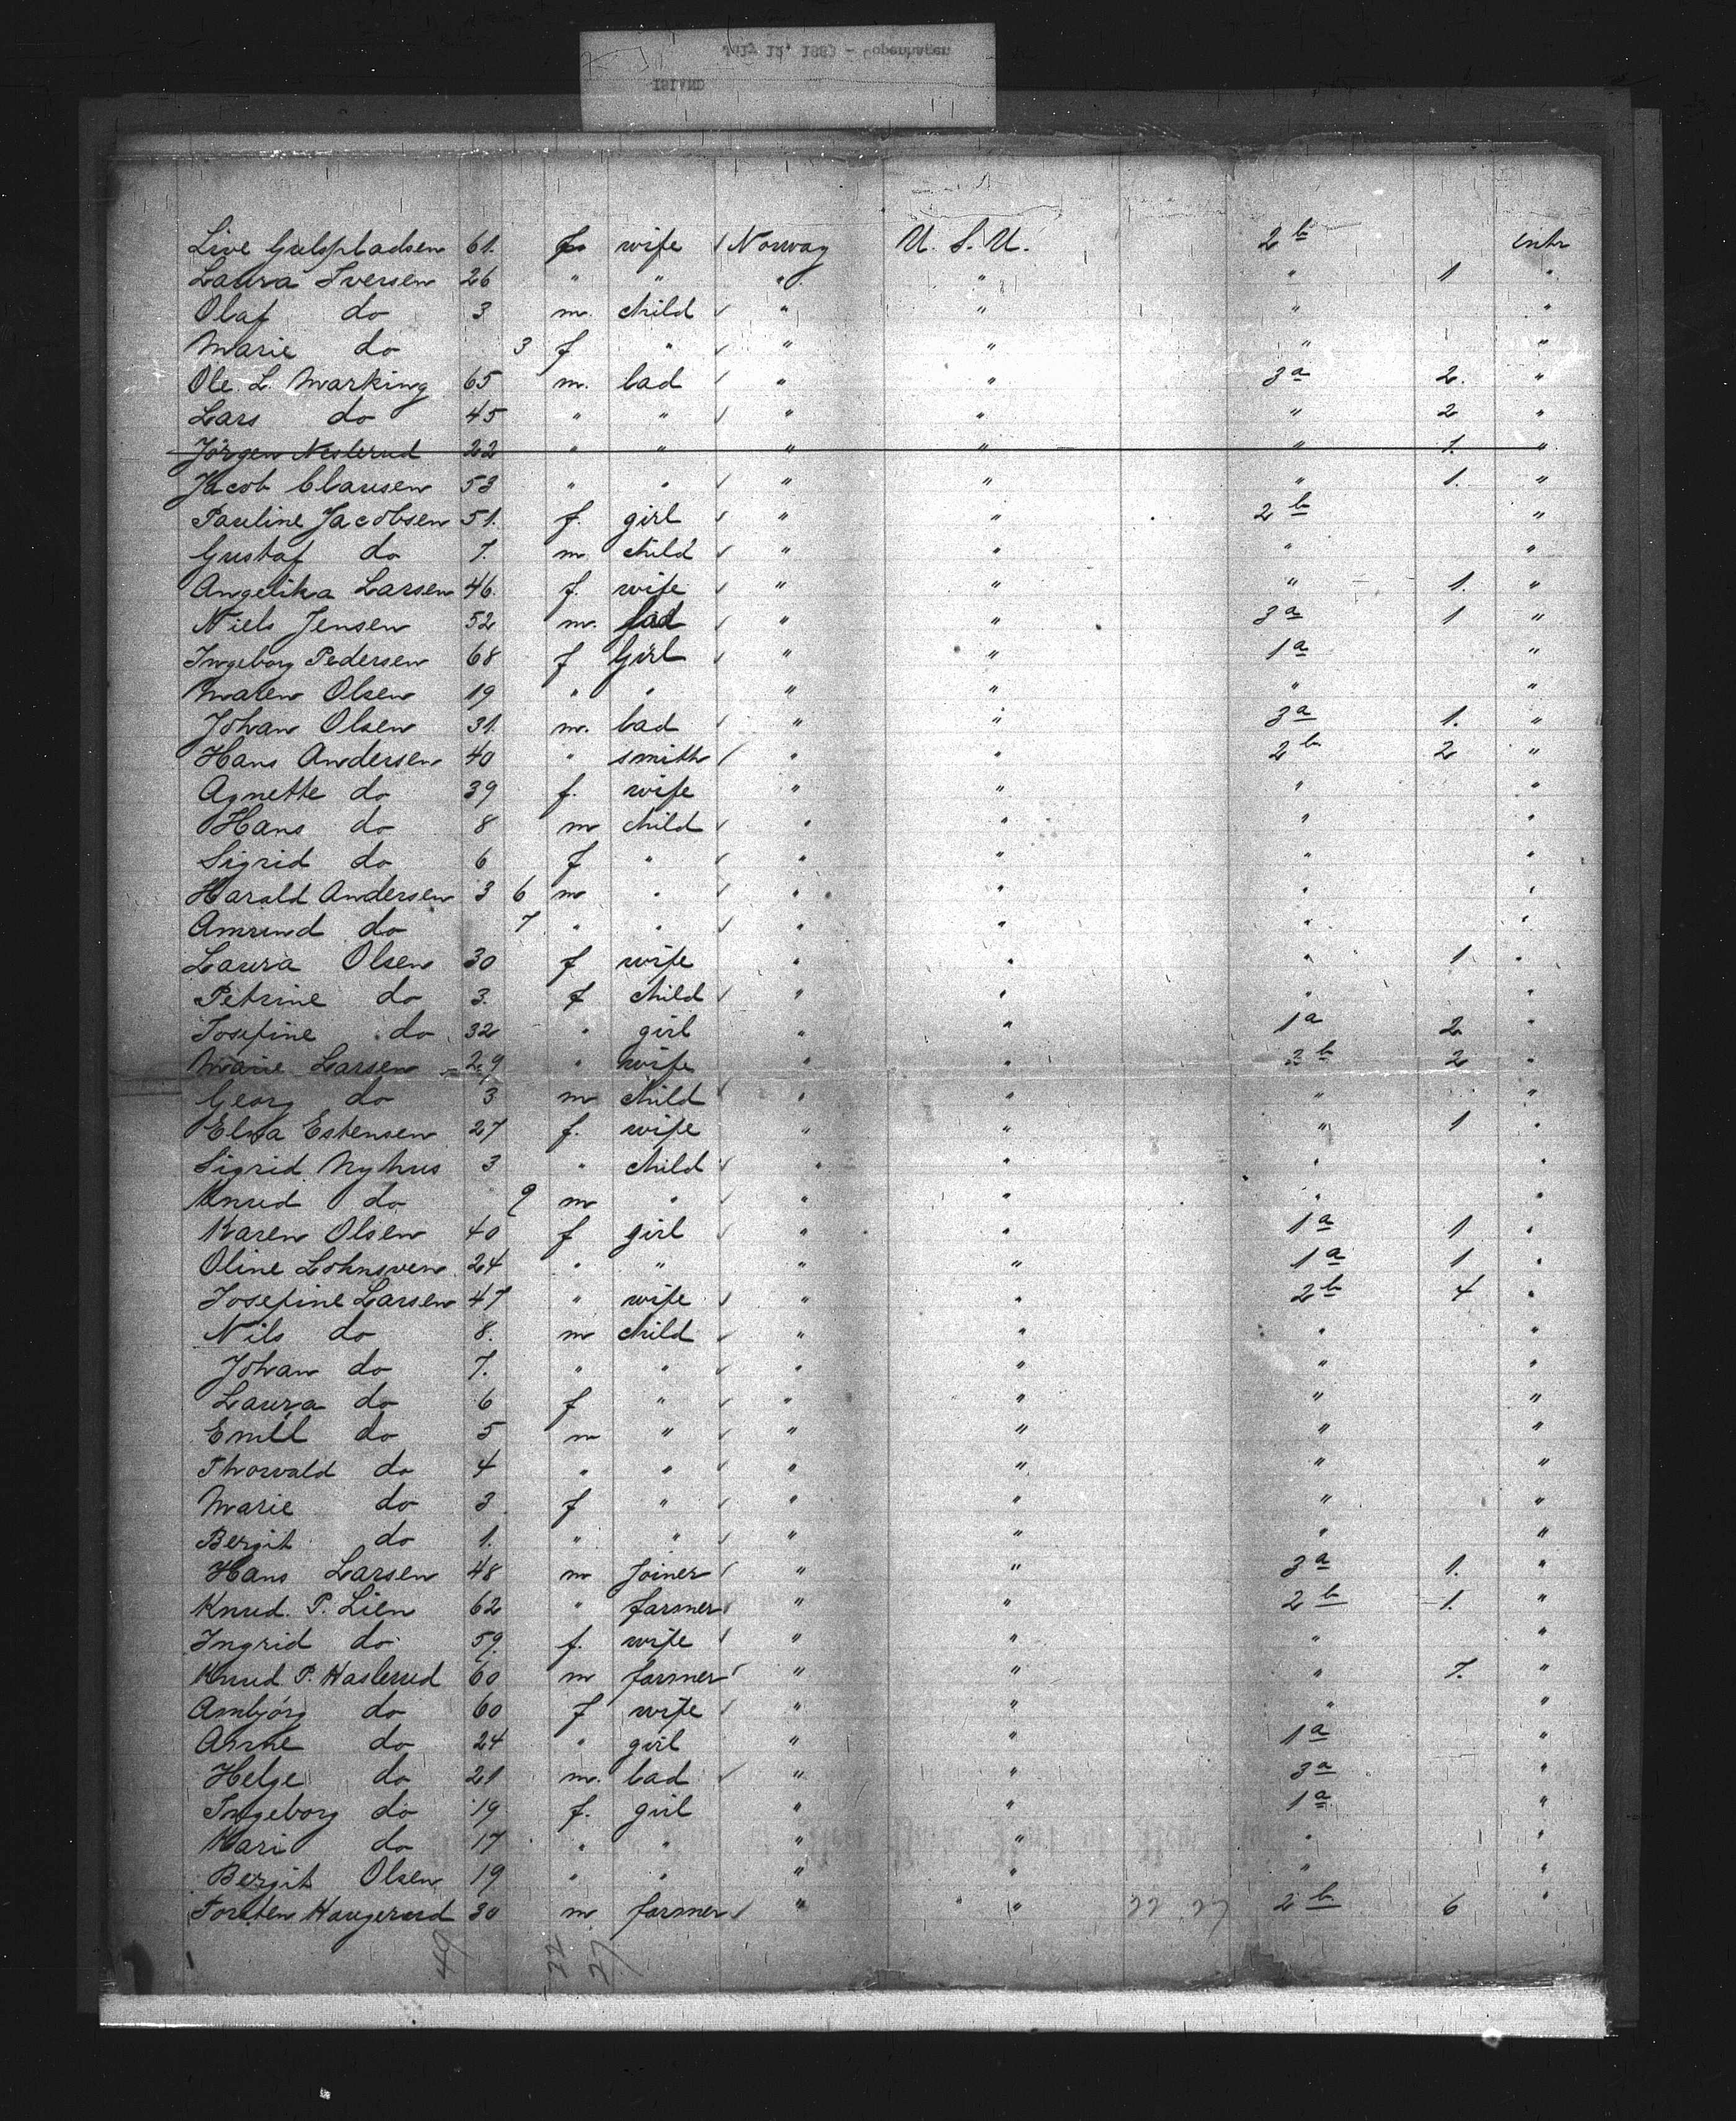 July 12, 1883 - Copenhagen
ISLAND
Live Gulspladsen 61. f wife Norway U. S. U. 2 b intr
Laura Iversen 26 " " " " " 1. "
Olaf do 3 m. child " " " "
Marie do 3 f " " " " "
Ole L. Marking 65 m. lad " " 3 a 2. "
Lars do 45 " " " " " 2 "
Jörgen Neslerud 22 " " " " " 1. "
Jacob Clausen 53 " " " " " 1. "
Pauline Jacobsen 51. f. girl " " 2 b "
Gustaf do 7. m child " " " "
Angelika Larsen 46. f. wife " " " 1. "
Niels Jensen 52 m. lad " " 3 a 1 "
Ingeborg Pedersen 68 f Girl " " 1 a "
Maren Olsen 19 " " " " " "
Johan Olsen 31. m. lad " " 3 a 1. "
Hans Andersen 40 " smith " " 2 b 2 "
Agnette do 39 f. wife " " " "
Hans do 8 m child " " " "
Sigrid do 6 f " " " " "
Harald Andersen 3 6 m " " " " "
Amund do 7 " " " " " "
Laura Olsen 30 f wife " " " 1 "
Petrine do 3. f child " " " "
Josefine do 32 " girl " " 1 a 2 "
Marie Larsen 29 " wife " " 2 b 2 "
Georg do 3 m child " " " "
Elna Estensen 27 f. wife " " " 1 "
Sigrid Nyhus 3 " child " " " "
Knud do 9 m " " " " "
Karen Olsen 40 f girl " " 1 a 1 "
Oline Lohnsven 24 " " " " 1 a 1 "
Josefine Larsen 47 " wife " " 2 b 4 "
Nils do 8. m child " " " "
Johan do 7. " " " " " "
Laura do 6 f " " " " "
Emil do 5 m " " " " "
Thorvald do 4 " " " " " "
Marie do 3 f " " " " "
Bergit do 1. " " " " " "
Hans Larsen 48 m Joiner " " 3 a 1. "
Knud. P. Lien 62 " farmer " " 2 b 1. "
Ingrid do 59. f. wife " " " "
Knud P. Haslerud 60 m farmer " " " 7. "
Ambjörg do 60 f wife " " " "
Anne do 24 " girl " " 1 a "
Helge do 21 m. lad " " 3 a "
Ingeborg do 19. f. girl " " 1 a "
Kari do 17 " " " " " "
Bergit Olsen 19 " " " " " "
Torsten Haugerud 30 m farmer " " 22 27 2 b 6 "
49 22 27